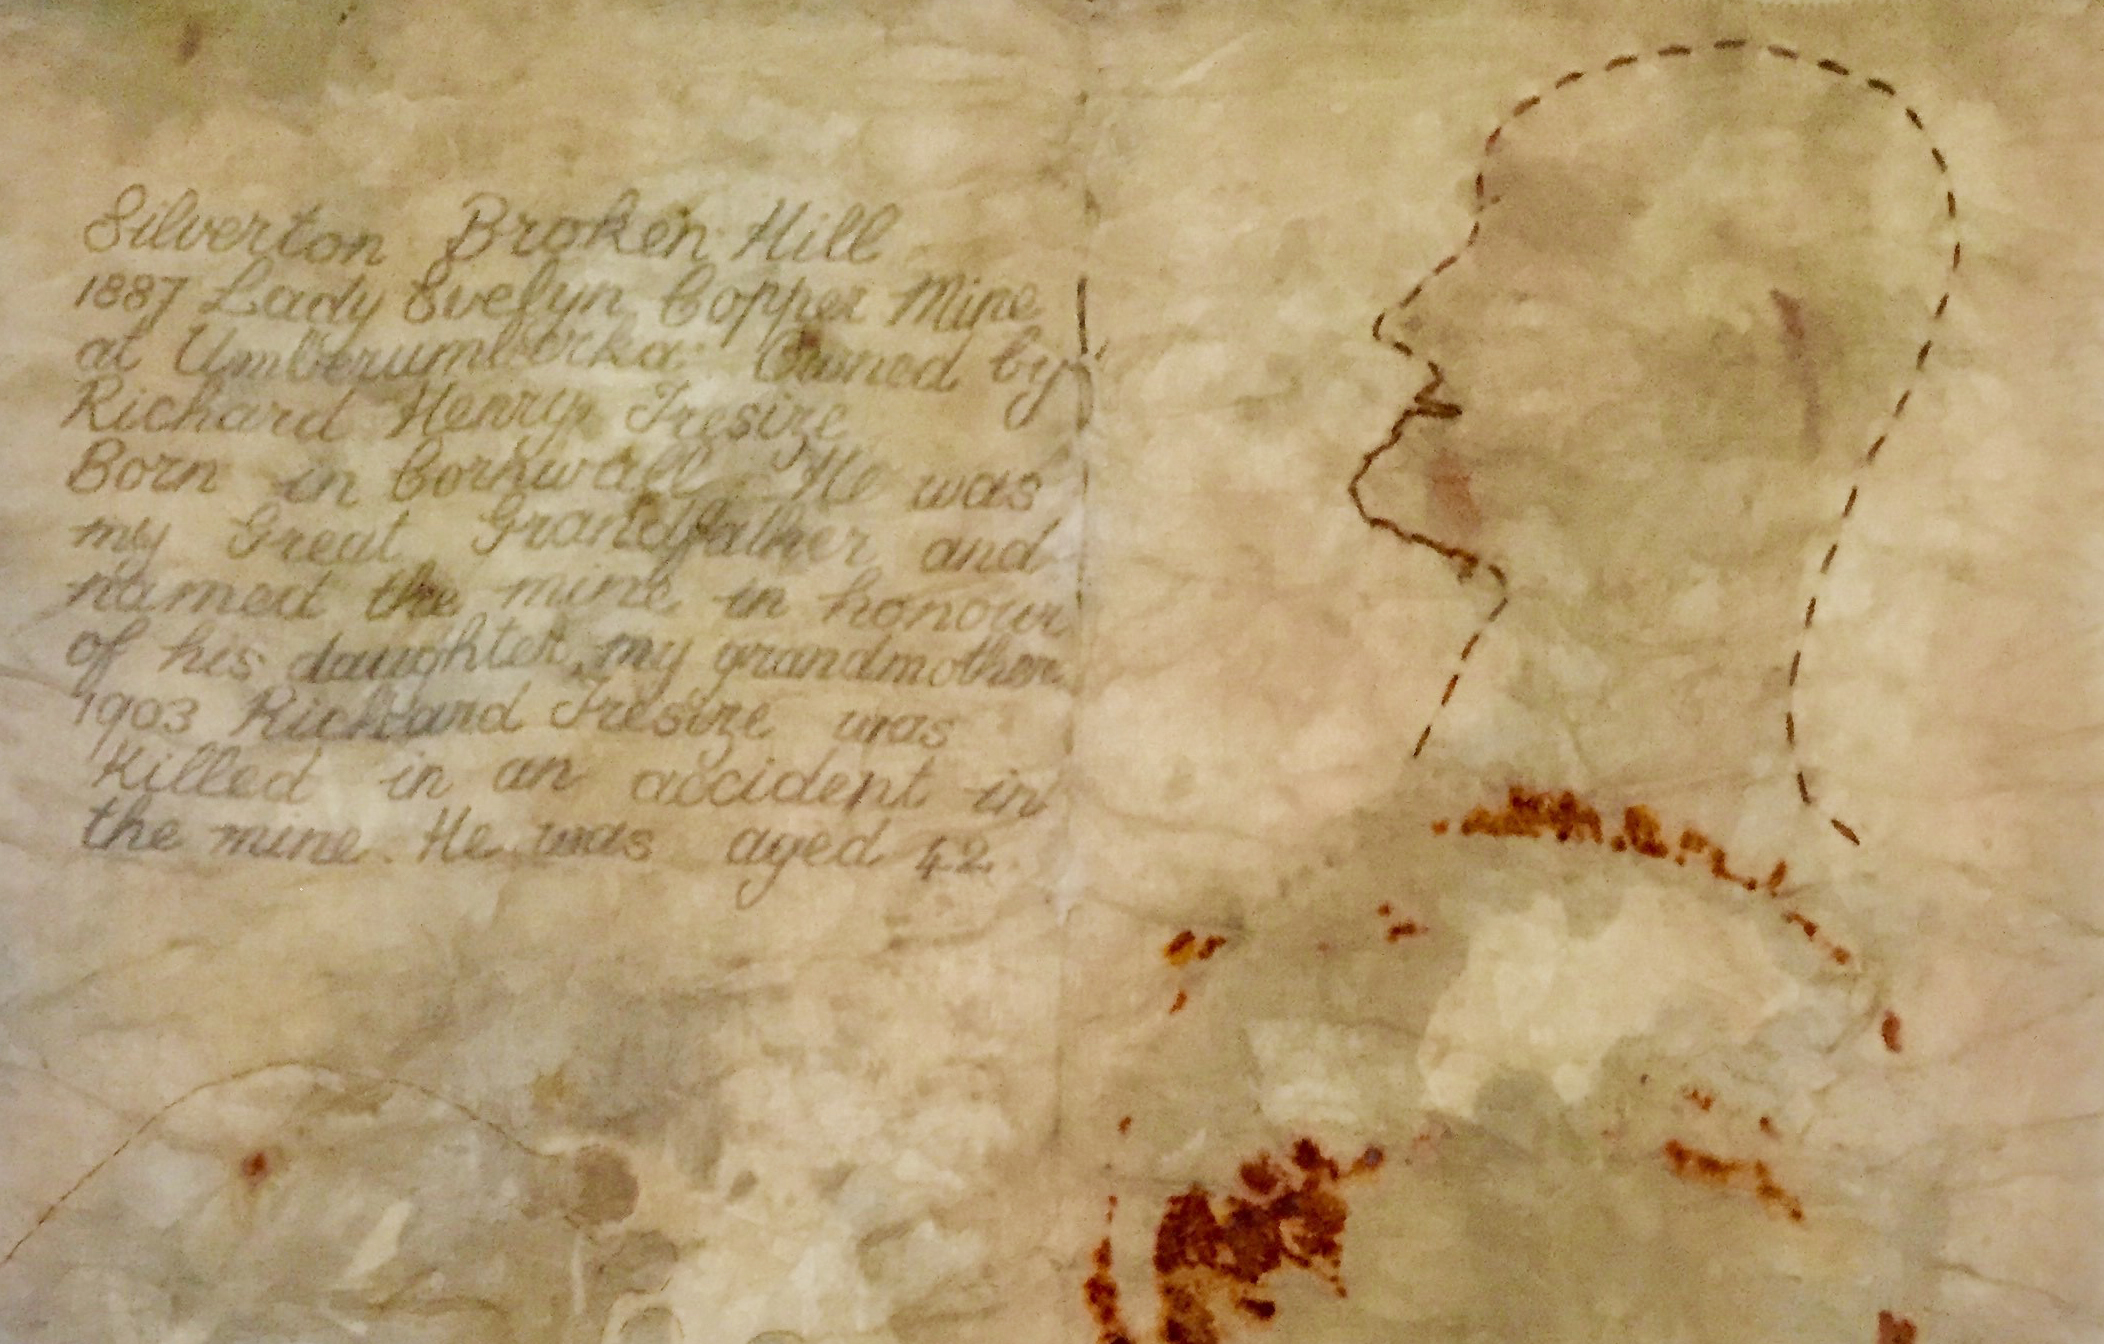 Silverton Broken Hill
1887 Lady Evelyn Copper Mine
at Umberumberka Owned by
Richard Henry Tresize
Born in Cornwall He was
my Great Grandfather and
named the mine in honour
of his daughter, my grandmother
1903 Richard Tresize was
Killed in an accident in
the mine. He was aged 42